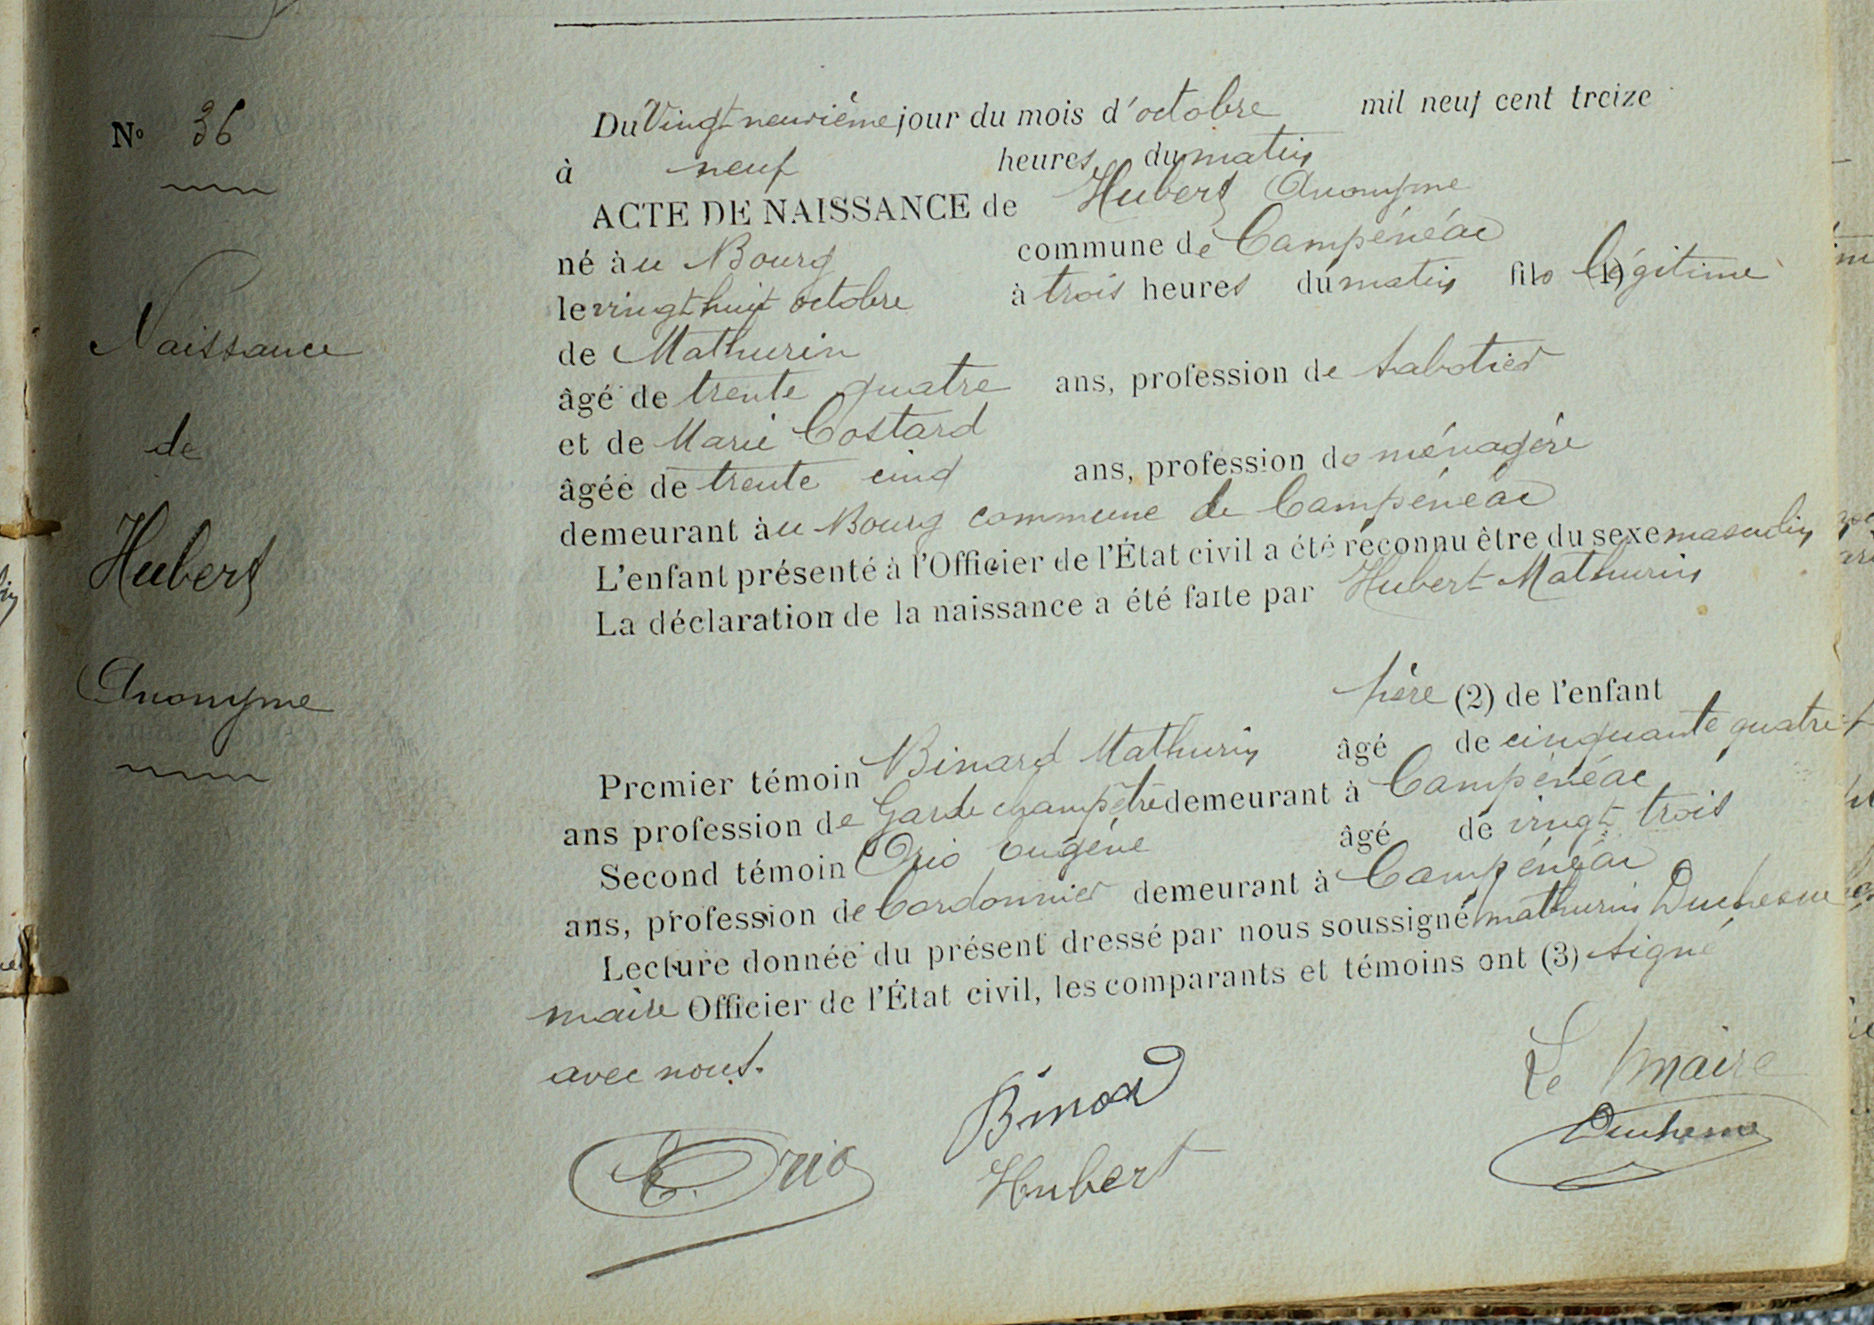 N° 36
Naissance
de
Hubert
Anonyme
Du Vingt neuvième jour du mois d'octobre mil neuf cent treize
à neuf heures du matin
ACTE DE NAISSANCE de Hubert Anonyme
né àu Bourg commune de Campénéac
le vingt huit octobre à trois heures du matin fils (1) légitime
de Mathurin
âgé de trente quatre ans, profession de sabotier
et de Marie Costard
âgée de trente cinq ans, profession de ménagère
demeurant àu Bourg commune de Campénéac
L'enfant présenté à l'Officier de l'État civil a été reconnu être du sexe masculin
La déclaration de la naissance a été faite par Hubert Mathurin
père (2) de l'enfant
Premier témoin Binard Mathurin âgé de cinquante quatre
ans profession de Garde champêtre demeurant à Campénéac
Second témoin Orio Eugène âgé de vingt trois
ans, profession de Cordonnier demeurant à Campénéac
Lecture donnée du présent dressé par nous soussigné mathurin Duchesne
maire Officier de l'État civil, les comparants et témoins ont (3) signé
avec nous.
Le maire
Binard
Duchesne
E. Orio
Hubert